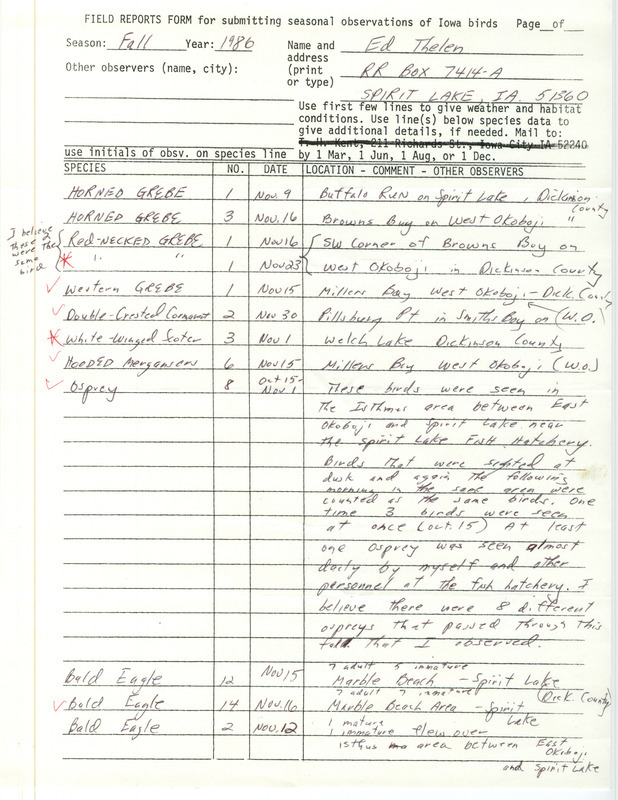 FIELD REPORTS FORM for submitting seasonal observations of Iowa birds Page__of__
Season: Fall Year: 1986 Name and Ed Thelen
address
Other observers (name, city): (print RR Box 7414-A
or type)
SPIRIT LAKE, IA. 51360
Use first few lines to give weather and habitat
conditions. Use line(s) below species data to
give additional details, if needed. Mail to:
T. H. Kent, 211 Richards St., Iowa City IA 52240
use initials of obsv. on species line by 1 Mar, 1 Jun, 1 Aug, or 1 Dec.
SPECIES NO. DATE LOCATION - COMMENT - OTHER OBSERVERS
HORNED GREBE 1 Nov. 9 Buffalo Run on Spirit Lake, Dickinson County
HORNED GREBE 3 Nov. 16 Browns Bay on West Okoboji "
I believe these 2 were the same bird
Red-NECKED GREBE 1 Nov 16 SW Corner of Browns Bay on
" " 1 Nov 23 West Okoboji in Dickinson County
Western GREBE 1 Nov 15 Millers Bay West Okoboji - Dick. County
Double-Crested Cormorant 2 Nov 30 Pillsbury Pt in Smiths Bay on (W.O.)
White-Winged Scoter 3 Nov 1 Welch Lake Dickinson County
HOODED Mergansers 6 Nov 15 Millers Bay West Okoboji (W.O.)
Osprey 8 Oct 15- Nov 1 These birds were seen in
the Isthmus area between East
Okoboji and Spirit Lake near
the Spirit Lake Fish Hatchery.
Birds that were sighted at
dusk and again the following
morning in the same area were
counted as the same birds. One
time 3 birds were seen
at once (Oct. 15) At least
one Osprey was seen almost
daily by myself and other
personnel at the fish hatchery. I
believe there were 8 different
ospreys that passed through this
fall that I observed.
7 adult 5 immature
Bald Eagle 12 Nov 15 Marble Beach - Spirit Lake
(Dick. County)
7 adult 7 immature
Bald Eagle 14 Nov. 16 Marble Beach Area - Spirit Lake
Bald Eagle 2 Nov. 12 1 mature
1 immature flew over
isthus area between East Okoboji
and Spirit Lake